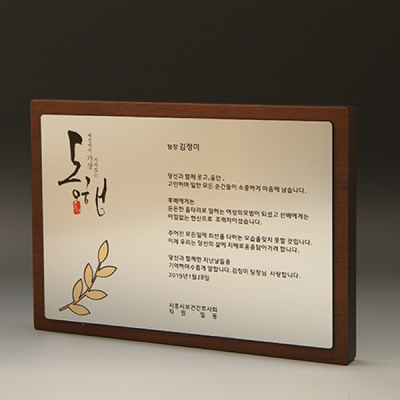 세상에서
가장
가치있는
동행
팀장 김정미
당신과 함께 웃고,울던 ,
고민하며 일한 모든 순간들이 소중하게 마음에 남습니다.
후배에게는
든든한 울타리로 말하는 여성의모범이 되셨고 선배에게는
아낌없는 헌신으로 조력자이셨습니다.
주어진 모든일에 최선을 다하는 모습을잊지 못할 것입니다.
이제 우리는 당신의 삶에 지혜로움을담아가려 합니다.
당신과 함께한 지난날들을
기억하며수줍게 말합니다.김정미 팀장님 사랑합니다.
2019년1월28일
시흥시보건간호사회
직원 일동